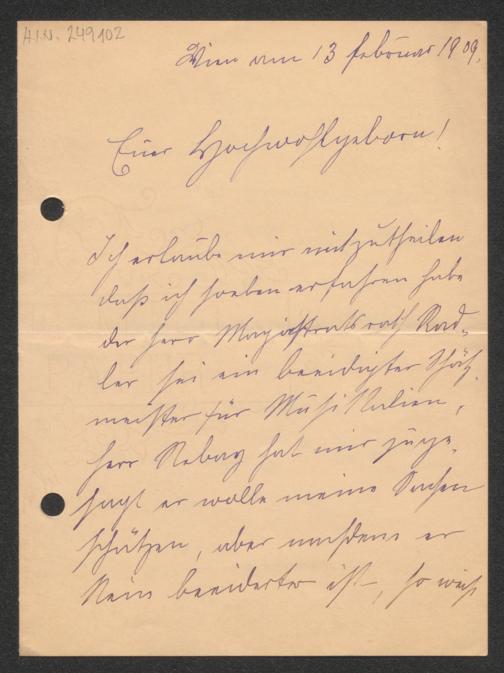 H.I.N. 249102
Wien am 13 Februar 1909.
Euer Hochwohlgeborn!
Ich erlaube mir mitzutheilen
daß ich soeben erfahren habe
der Herr Magistratsrath Rad-
ler sei ein beeidigter Schätz
meister für Musikalien,
Herr Rebay hat mir zuge-
sagt er wolle meine Sachen
schätzen, aber nachdem er
kein beeideter ist, so weiß